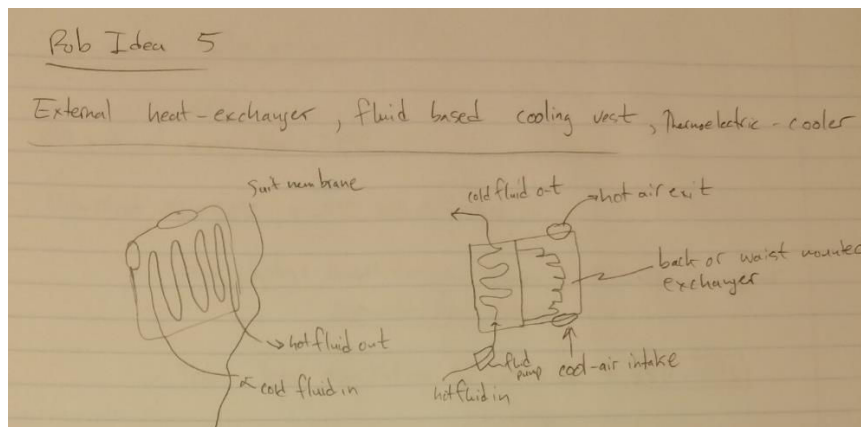 Rob Idea 5
External heat-exchanger, fluid based cooling vest, Thermoelectric-cooler
suit membrane
hot fluid out
cold fluid in
cold fluid out
hot air exit
back or waist mounted
exchanger
fluid
pump
cool-air intake
hot fluid in